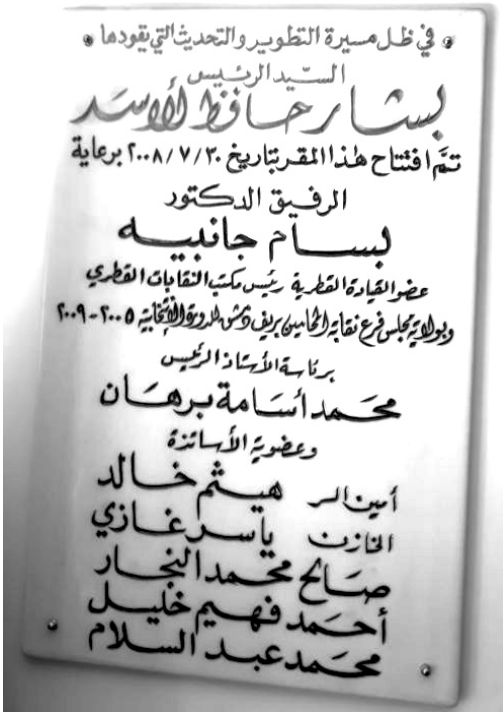 في ظل مسيرة التطوير والتحديث التي يقودها
السيّد الرئيس
بشار حافظ الأسد
تمَّ افتتاح هذا المقر بتاريخ ٢٠٠٨/٧/٣٠ برعاية
الرفيق الدكتور
بسام جانبيه
عضو القيادة القطرية رئيس مكتب النقابات القطري
وبولاية مجلس فرع نقابة المحامين بريف دمشق للدورة الانتخابية ٢٠٠٥-٢٠٠٩
برئاسة الأستاذ الرئيس
محمد أسامة برهان
وعضوية الأساتذة
أمين السر هيثم خالد
الخازن ياسر غازي
صالح محمد النجار
أحمد فهيم خليل
محمد عبد السلام